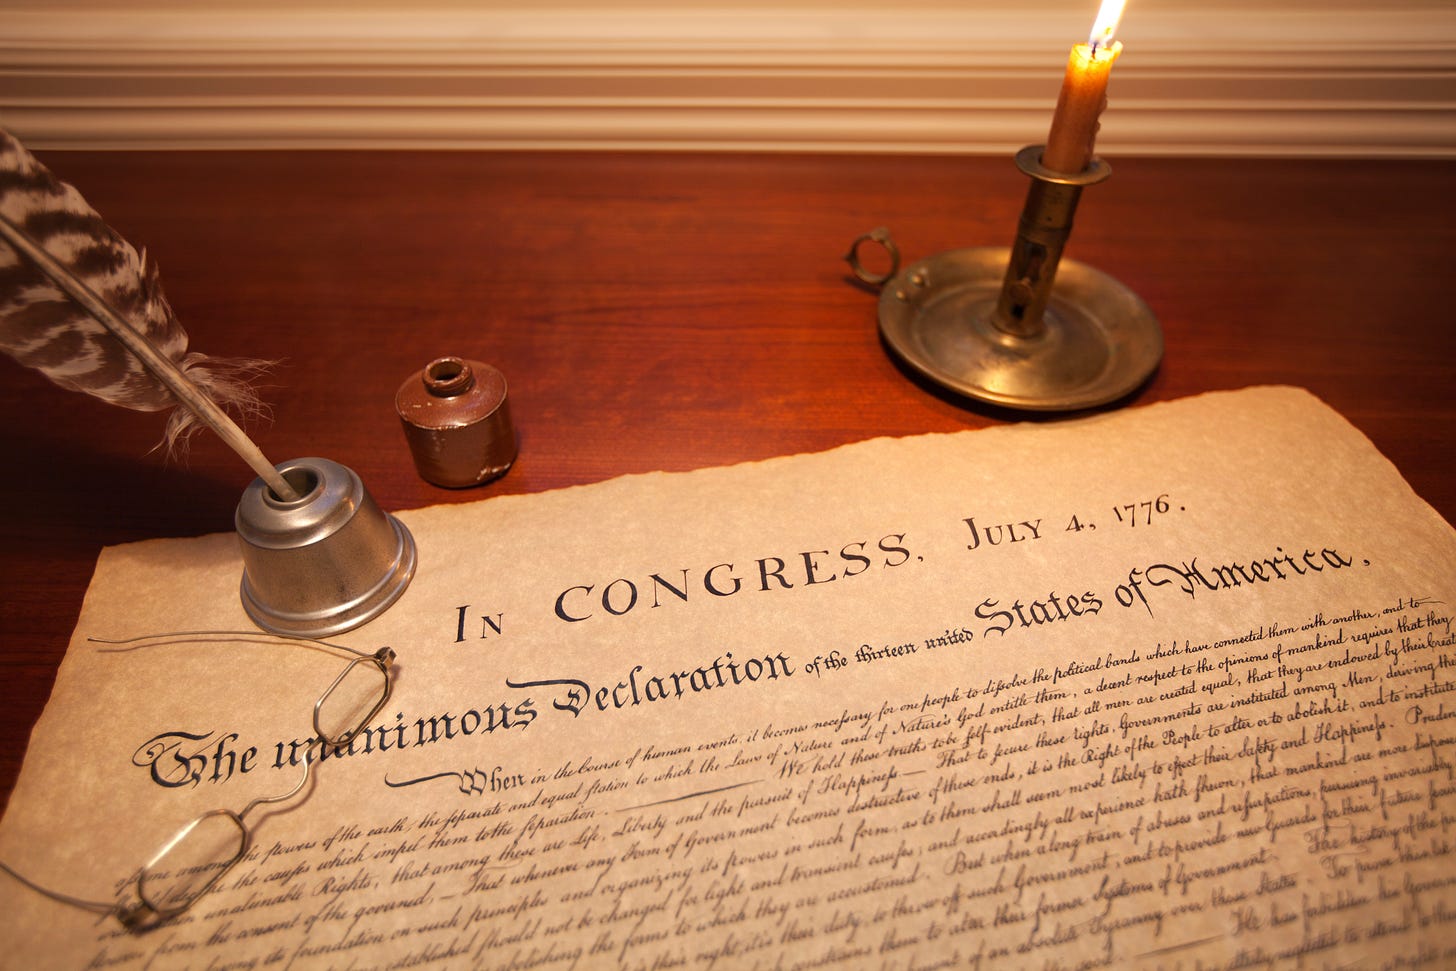 In CONGRESS, July 4, 1776.
The unanimous Declaration of the thirteen united States of America,
When in the Course of human events, it becomes necessary for one people to dissolve the political bands which have connected them with another, and to
among the powers of the earth, the separate and equal station to which the Laws of Nature and of Nature's God entitle them, a decent respect to the opinions of mankind requires that they
the causes which impel them to the separation. We hold these truths to be self-evident, that all men are created equal, that they are endowed by their
unalienable Rights, that among these are Life, Liberty and the pursuit of Happiness — That to secure these rights, Governments are instituted among Men, deriving
from the consent of the governed, — That whenever any Form of Government becomes destructive of these ends, it is the Right of the People to alter or to abolish it, and to institute
its foundation on such principles and organizing its powers in such form, as to them shall seem most likely to effect their Safety and Happiness.
established should not be changed for light and transient causes; and accordingly all experience hath shewn, that mankind are more
abolishing the forms to which they are accustomed. But when a long train of abuses and usurpations, pursuing invariably
is their right, it is their duty, to throw off such Government, and to provide new Guards for their future
constrains them to alter their former Systems of Government. The history of the
of an absolute Tyranny over these States. To prove this
He has forbidden his
neglected to attend to